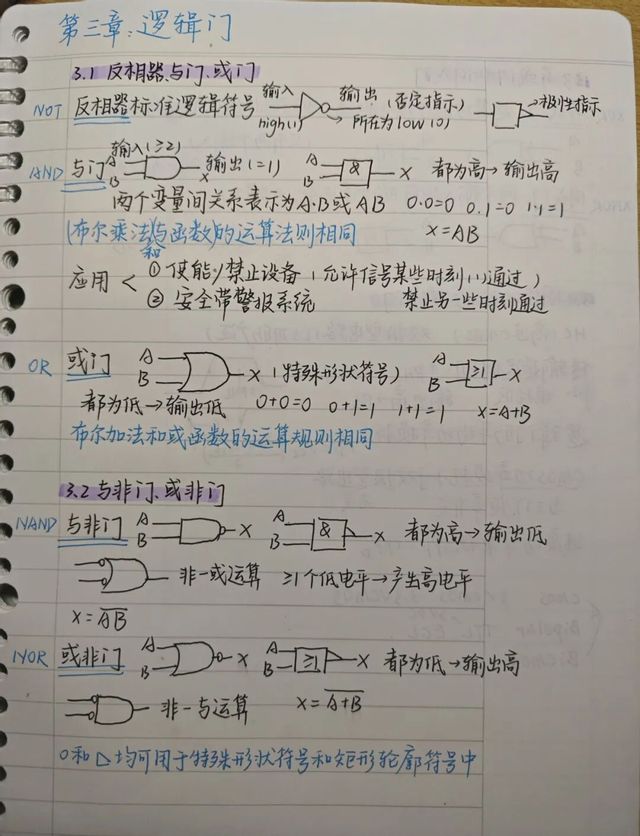 第三章:逻辑门
3.1 反相器、与门、或门
NOT 反相器标准逻辑符号 输入 high(1) 输出 (否定指示) 所在为low(0) 极性指示
AND 与门 输入(≥2) A B X 输出(=1) A B & X 都为高→输出高
两个变量间关系表示为A·B或AB 0·0=0 0·1=0 1·1=1
(布尔乘法)和(与函数)的运算法则相同 X=AB
应用 < ① 使能/禁止设备(允许信号某些时刻(1)通过)
② 安全带警报系统 禁止另一些时刻通过
OR 或门 A B X (特殊形状符号) A B ≥1 X
都为低→输出低 0+0=0 0+1=1 1+1=1 X=A+B
布尔加法和或函数的运算规则相同
3.2 与非门、或非门
NAND 与非门 A B X A B & X 都为高→输出低
非一或运算 ≥1个低电平→产出高电平
X=A̅B̅
NOR 或非门 A B X A B ≥1 X 都为低→输出高
非一与运算 X=A̅+̅B̅
O和△均可用于特殊形状符号和矩形轮廓符号中